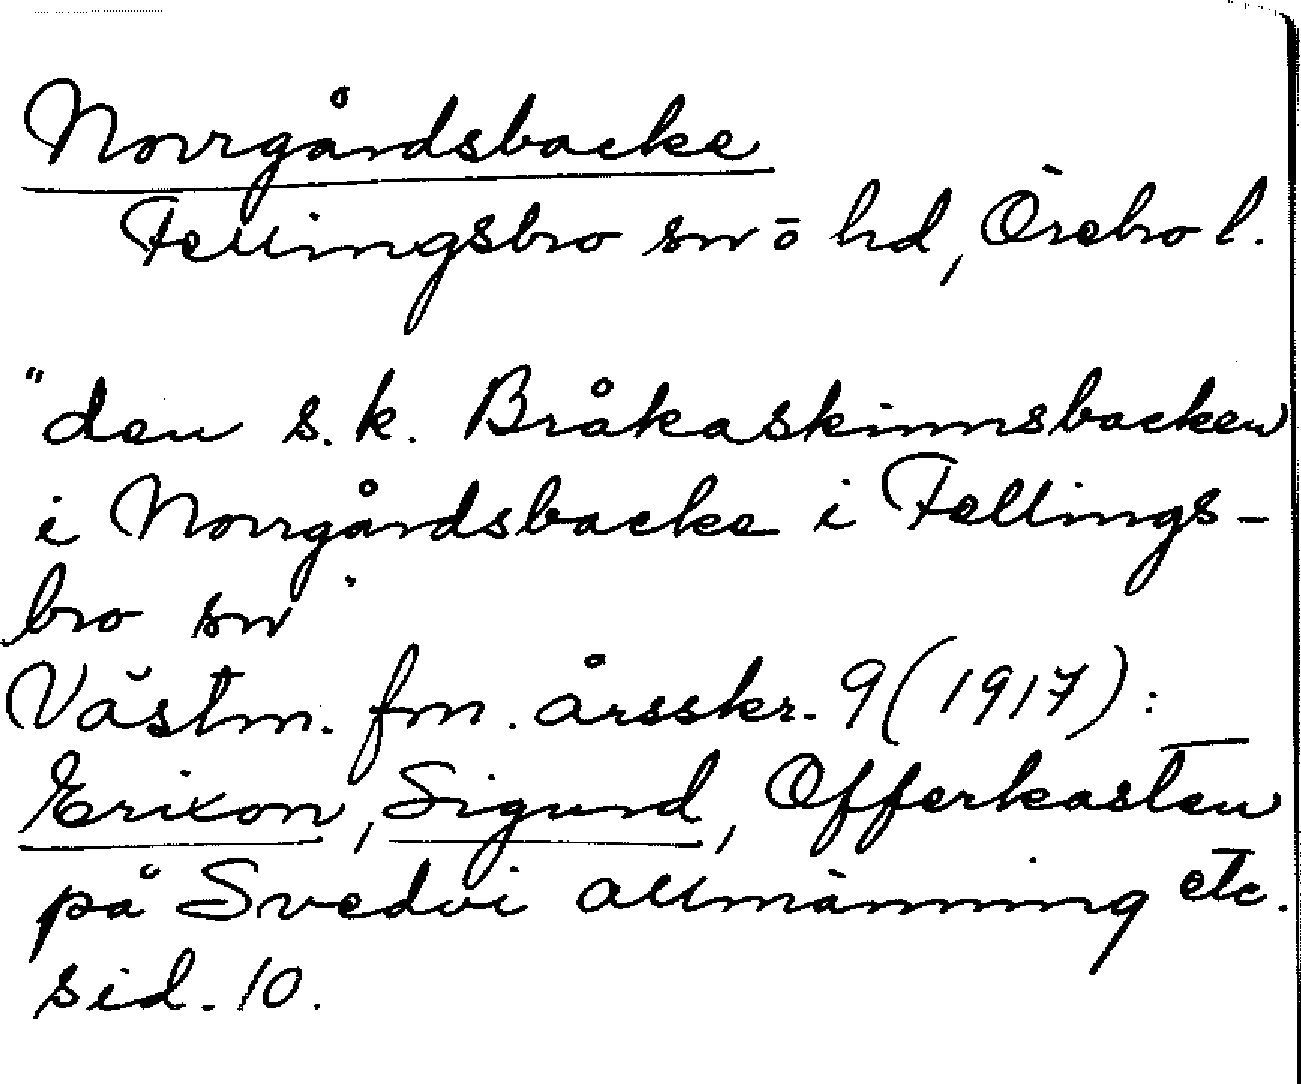 Norrgårdsbacke
Fellingsbro sn ō hd, Örebro l.
"den s.k. Bråkaskinnsbacken
i Norrgårdsbacke i Fellings-
bro sn"
Västm. fm. årsskr. 9 (1917):
Erixon, Sigurd, Offerkasten
på Svedvi allmänning etc.
sid. 10.